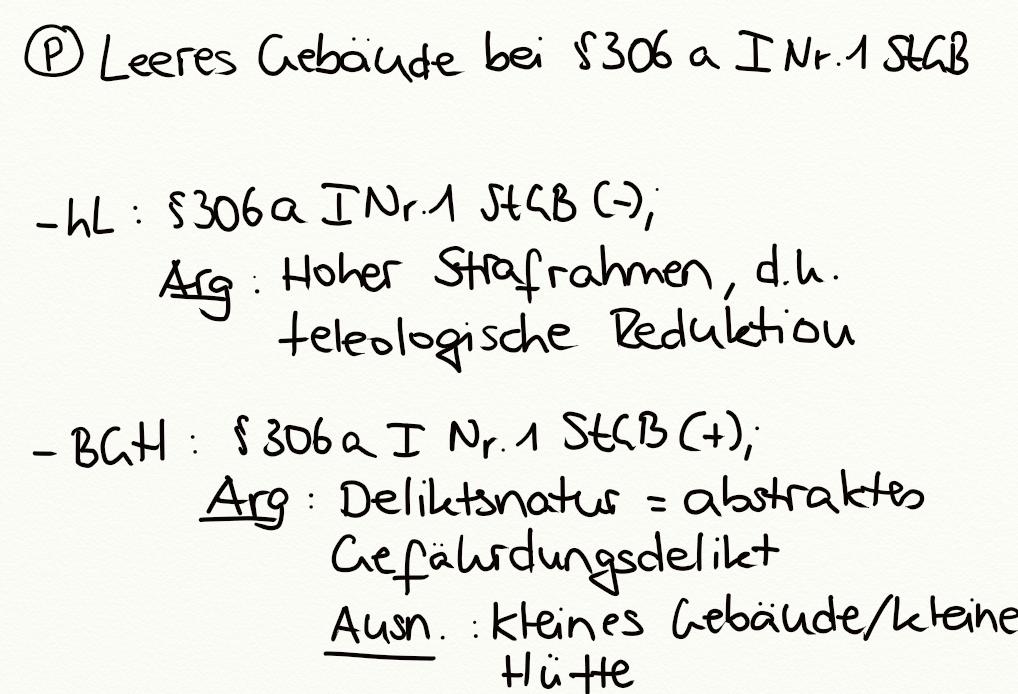 (P) Leeres Gebäude bei §306 a I Nr. 1 StGB
- hL : §306 a I Nr. 1 StGB (-);
Arg : Hoher Strafrahmen, d.h.
teleologische Reduktion
- BGH : §306 a I Nr. 1 StGB (+);
Arg : Deliktsnatur = abstraktes
Gefährdungsdelikt
Ausn. : kleines Gebäude/kleine
Hütte